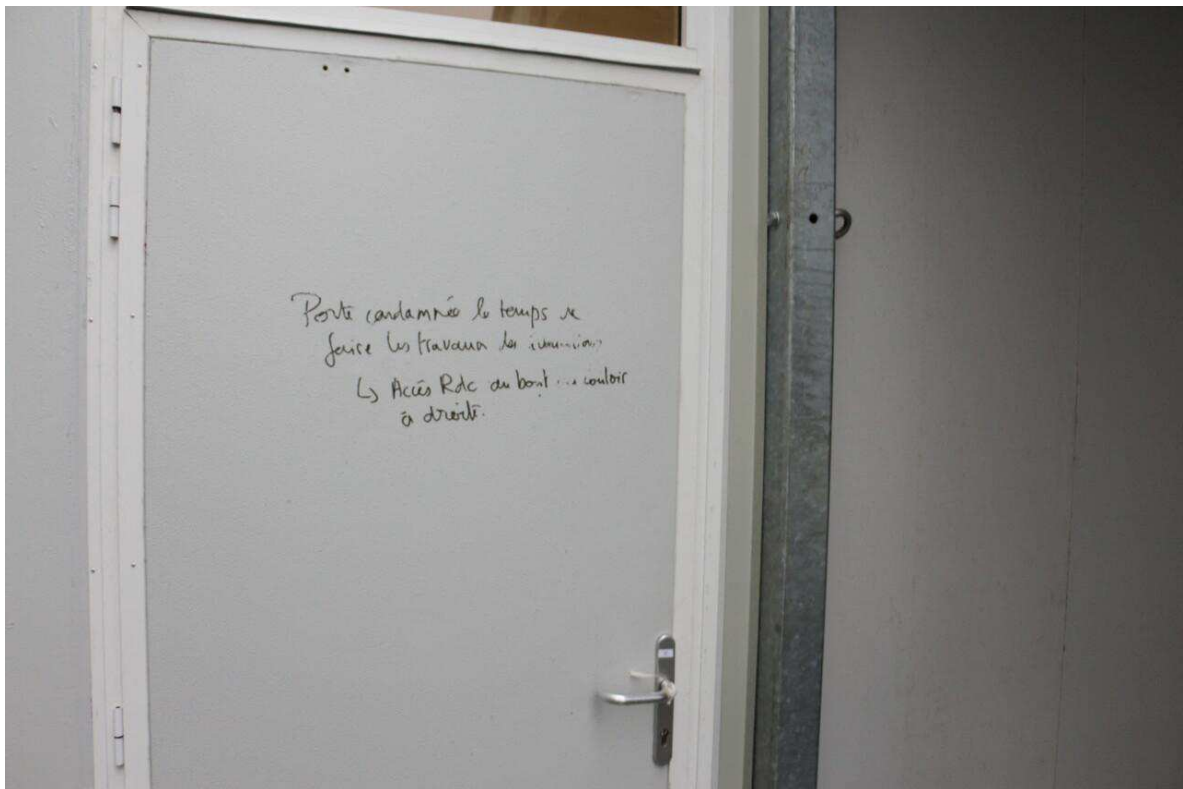 Porte condamnée le temps de
faire les travaux les
↳ Accès Rdc au bout couloir
à droite.